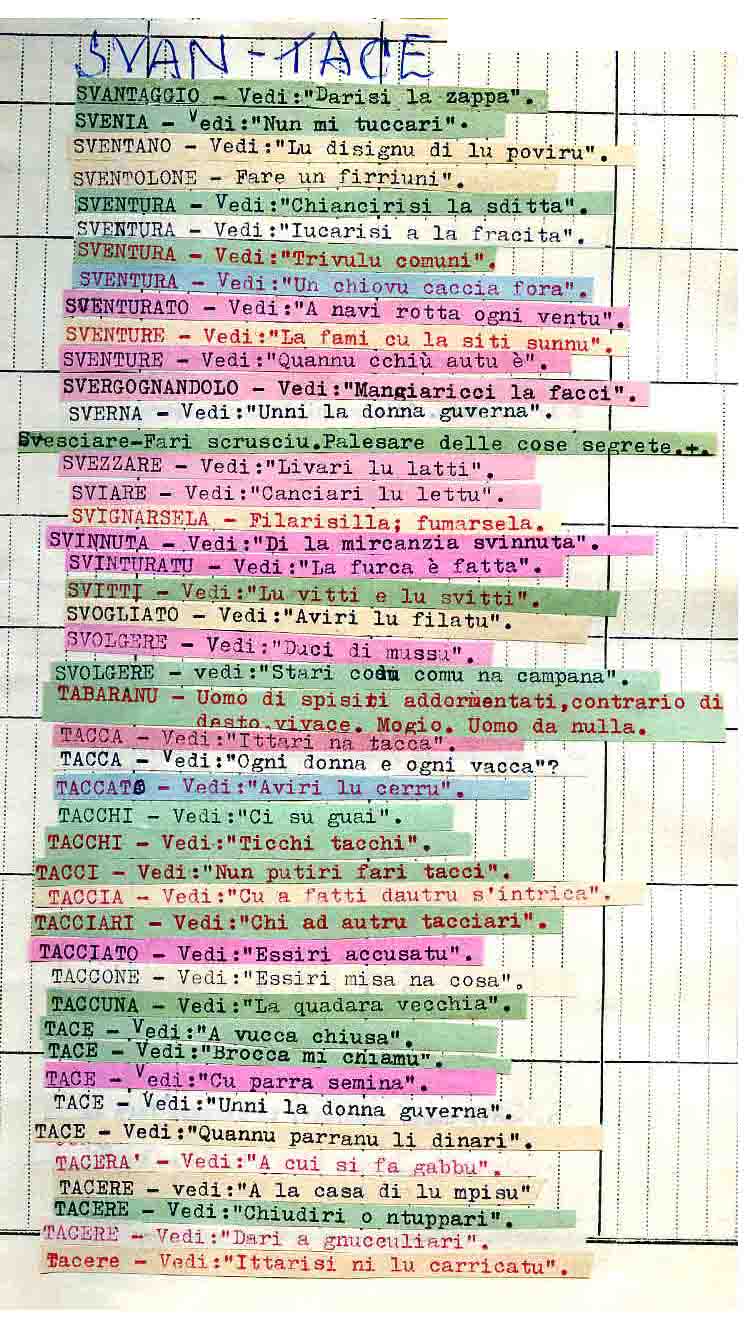 SVAN-TACE
SVANTAGGIO - Vedi:"Darisi la zappa".
SVENIA - Vedi:"Nun mi tuccari".
SVENTANO - Vedi:"Lu disignu di lu poviru".
SVENTOLONE - Fare un firriuni".
SVENTURA - Vedi:"Chiancirisi la sditta".
SVENTURA - Vedi:"Iucarisi a la fracita".
SVENTURA - Vedi:"Trivulu comuni".
SVENTURA - Vedi:"Un chiovu caccia fora".
SVENTURATO - Vedi:"A navi rotta ogni ventu".
SVENTURE - Vedi:"La fami cu la siti sunnu".
SVENTURE - Vedi:"Quannu cchiù autu è".
SVERGOGNANDOLO - Vedi:"Mangiaricci la facci".
SVERNA - Vedi:"Unni la donna guverna".
Svesciare-Fari scrusciu.Palesare delle cose segrete.+.
SVEZZARE - Vedi:"Livari lu latti".
SVIARE - Vedi:"Canciari lu lettu".
SVIGNARSELA - Filarisilla; fumarsela.
SVINNUTA - Vedi:"Di la mircanzia svinnuta".
SVINTURATU - Vedi:"La furca è fatta".
SVITTI - Vedi:"Lu vitti e lu svitti".
SVOGLIATO - Vedi:"Aviri lu filatu".
SVOLGERE - Vedi:"Duci di mussu".
SVOLGERE - vedi:"Stari codu comu na campana".
TABARANU - Uomo di spisiti addormentati,contrario di
desto,vivace. Mogio. Uomo da nulla.
TACCA - Vedi:"Ittari na tacca".
TACCA - Vedi:"Ogni donna e ogni vacca"?
TACCATO - Vedi:"Aviri lu cerru".
TACCHI - Vedi:"Ci su guai".
TACCHI - Vedi:"Ticchi tacchi".
TACCI - Vedi:"Nun putiri fari tacci".
TACCIA - Vedi:"Cu a fatti dautru s'intrica".
TACCIARI - Vedi:"Chi ad autru tacciari".
TACCIATO - Vedi:"Essiri accusatu".
TACCONE - Vedi:"Essiri misa na cosa".
TACCUNA - Vedi:"La quadara vecchia".
TACE - Vedi:"A vucca chiusa".
TACE - Vedi:"Brocca mi chiamu".
TACE - Vedi:"Cu parra semina".
TACE - Vedi:"Unni la donna guverna".
TACE - Vedi:"Quannu parranu li dinari".
TACERA' - Vedi:"A cui si fa gabbu".
TACERE - vedi:"A la casa di lu mpisu"
TACERE - Vedi:"Chiudiri o ntuppari".
TACERE - Vedi:"Dari a gnucculiari".
Tacere - Vedi:"Ittarisi ni lu carricatu".